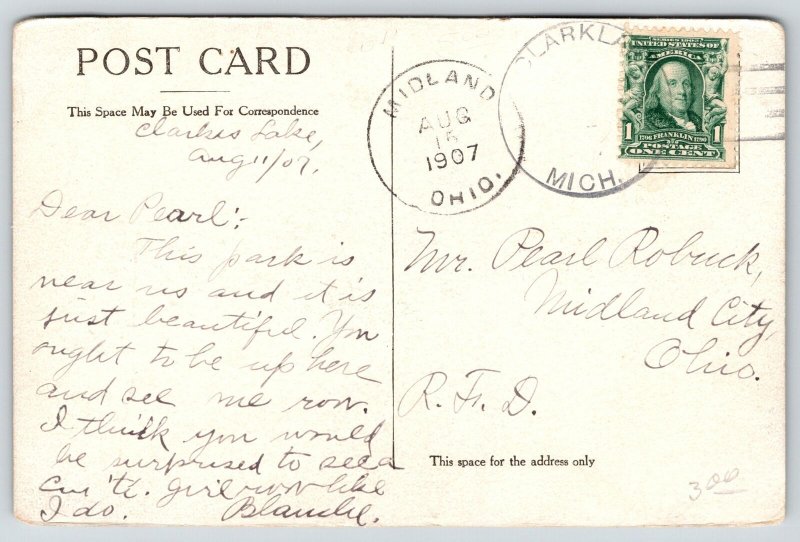 POST CARD
This Space May Be Used For Correspondence
Clarkes Lake,
Aug 11/07.
Dear Pearl:-
This park is
near us and it is
just beautiful. You
ought to be up here
and see me row.
I think you would
be surprised to see a
girl row like
I do. Blanche.
MIDLAND
AUG
15
1907
OHIO.
CLARKLA
MICH.
SERIES 1902
UNITED STATES OF
AMERICA
1706 FRANKLIN 1790
1 POSTAGE 1
ONE CENT
Mr. Pearl Robuck,
Midland City,
Ohio.
R. F. D.
This space for the address only
3.00